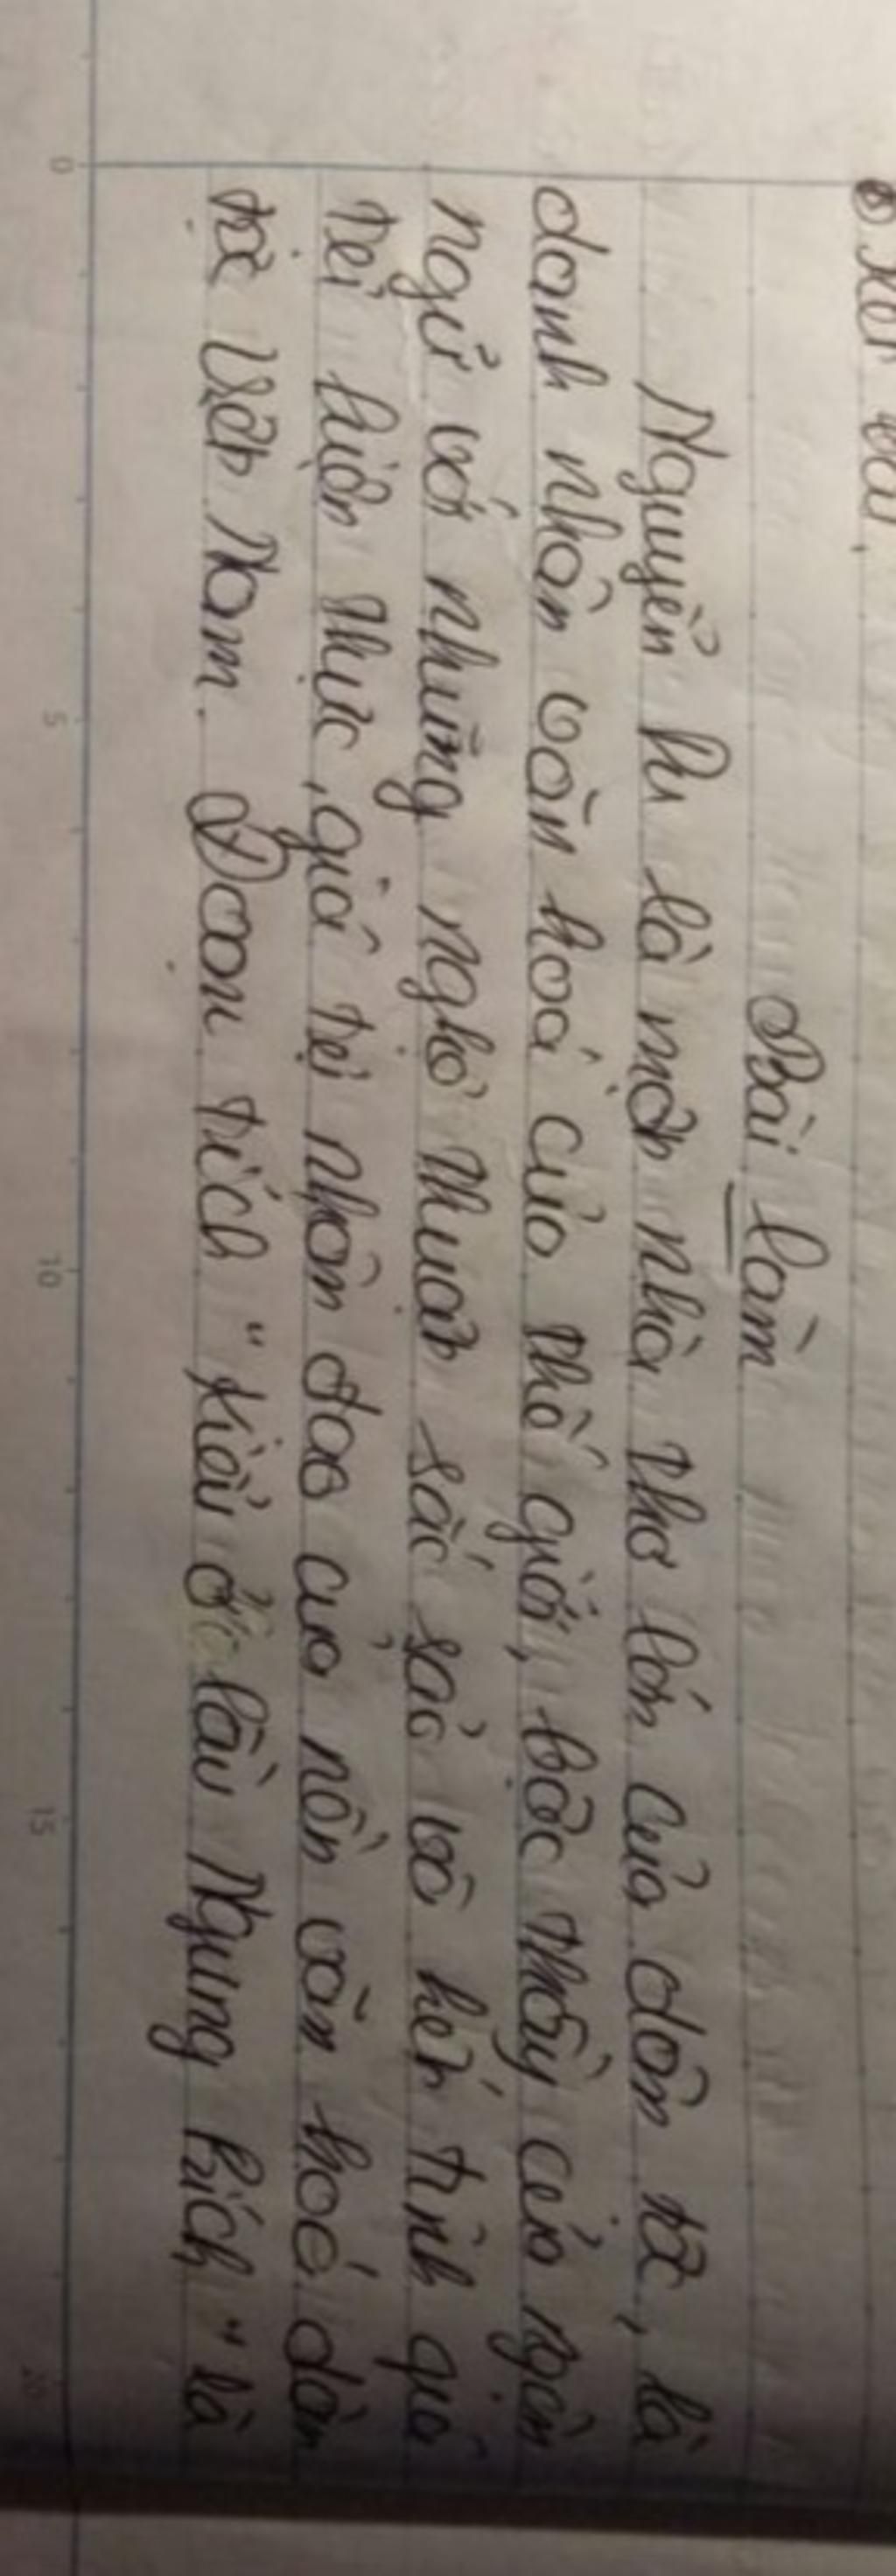 Bài làm
Nguyễn Du là một nhà thơ lớn của dân tộc, là
danh nhân văn hoá của thế giới, bậc thầy của ngôn
ngữ với những nghệ thuật sắc sảo vô kết tinh giá
trị hiện thực, giá trị nhân đạo của nền văn hoá dân
tộc Việt Nam. Đoạn trích "Kiều ở lầu Ngưng Bích" là